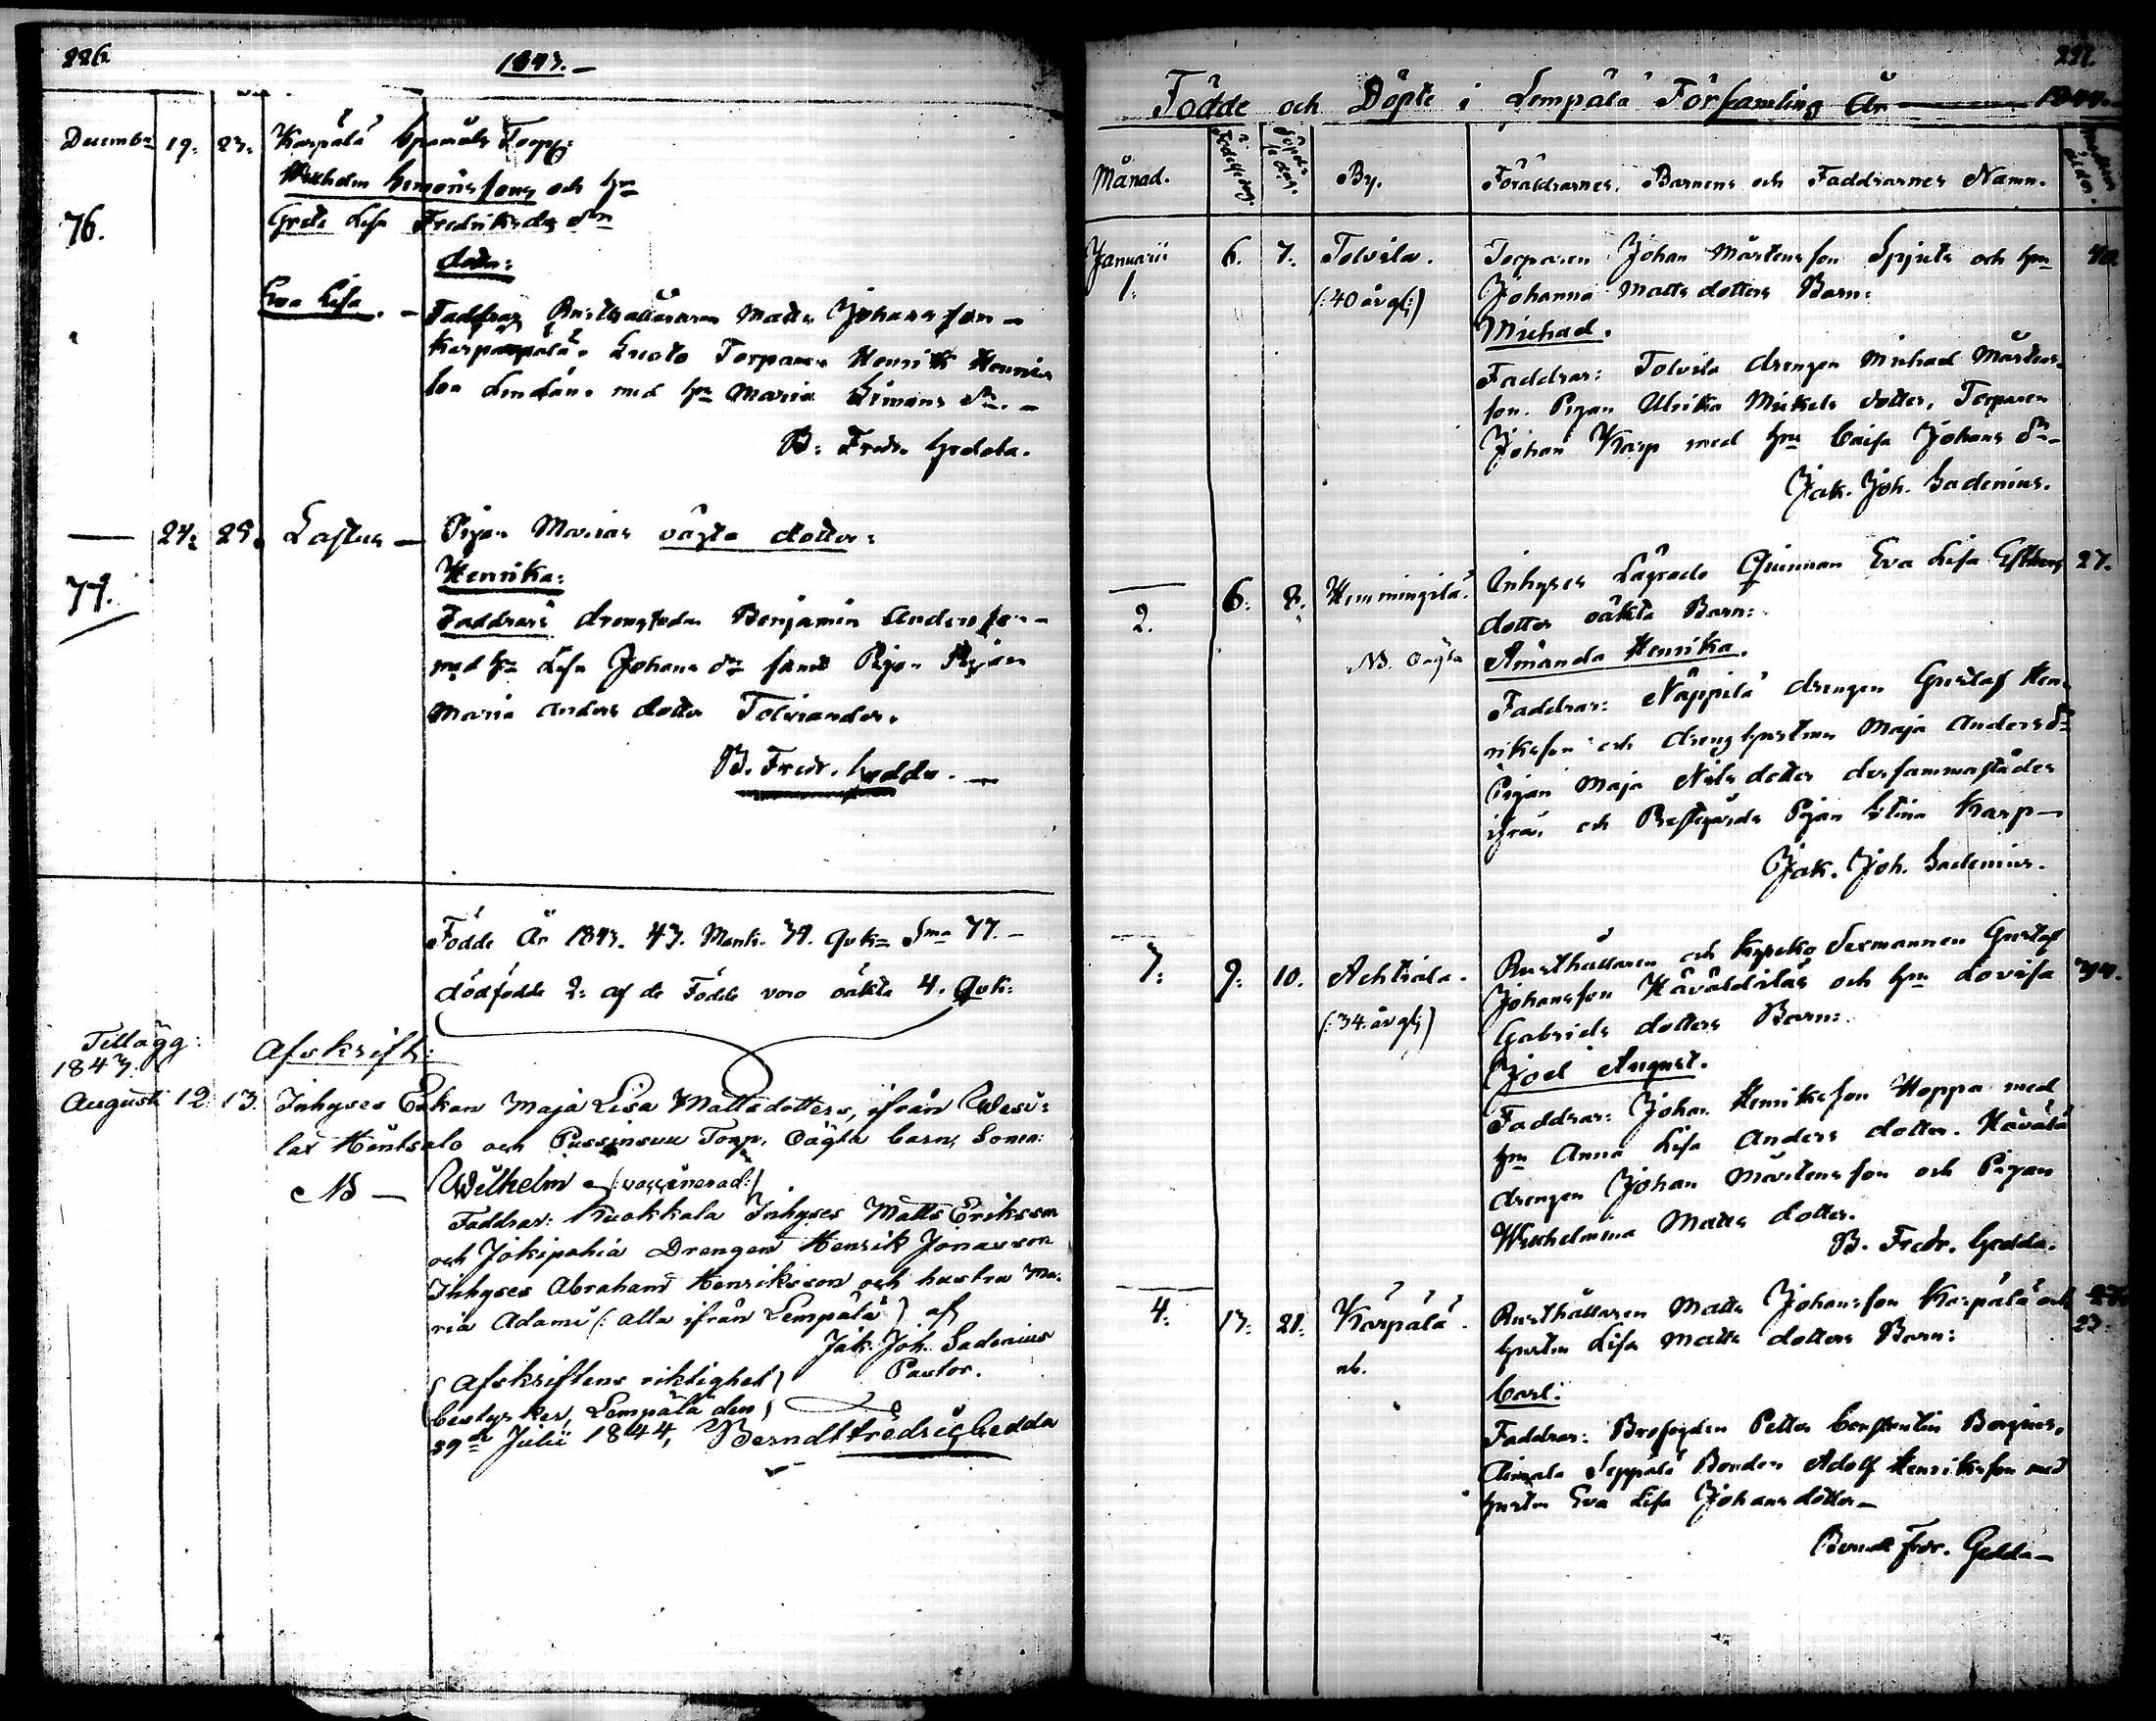 226
1843.
Decembr 19. 23. Karpälä Torp:
Wilhelm Simonssons och hn
Greta Lisa Fredriksdr
dotter:
76.
Eva Lisa.
Faddrar Rusthållaren Matts Johansson
Torparen Henrik Henriks
son med hn Maria Simons dr.
B: Fredr. Gedda.
24. 25. Lastus Pigan Marias oägta dotter:
77.
Henrika:
Faddrar: Benjamin Andersson
med hn Lisa Johans dr samt Pigan
Maria Anders dotter Tolviander.
B. Fredr. Gedda.
Födde År 1843. 43. Mank. 34. Qvk= Sma 77.
dödfödde 2: af de Födde voro oäkta 4. Qvk:
Tillägg:
1843.
Afskrift:
Augusti 12. 13. Inhyses Enkan Maja Lisa Mattsdotters, ifrån Wesi:
lax Häntsalo och Torp. Oägta barn, Sonen:
NB Wilhelm (: vaccinerad :)
Faddrar: Kuokkala Inhyses Matts Eriksson
och Jokipohia Drengen Henrik Jonasson
Inhyses Abraham Henriksson och hustru Ma:
ria Adams (: alla ifrån Lempälä) af
Jak. Joh. Sadenius
Pastor.
Afskriftens riktighet
bestyrker, Lempälä den
29de Julii 1844, Berndt Fredric Gedda
227.
Födde och Döpte i Lempälä Församling År 1844.
Månad. Födelsedag. Döpelsedag. By. Föräldrarnes, Barnens och Faddrarnes Namn. Modrens ålder.
Januarii 6. 7. Tolvila. Torparen Johan Mårtensson och hn 40
1. (: 40 år gl:) Johanna Matts dotters Barn:
Michael.
Faddrar: Tolvila drengen Michael Mårtens
son. Pigan Ulrika Mickels dotter, Torparen
Johan Karp med hn Caisa Johans dr
Jak. Joh. Sadenius.
2. 6. 8. Hemmingilä. Inhyses Lägrade Qvinnan Eva Lisa 27.
dotter oäkta Barn:
NB. Oägta Amanda Henrika.
Faddrar: Näppilä drengen Gustaf Hen-
riksson och drenghustrun Maja Andersdr
Pigan Maja Nils dotter dersammastädes
ifrån och Prestgårds Pigan Stina Karp
Jak. Joh. Sadenius.
3. 9. 10. Achtiala. Rusthållaren och Kyrko Sexmannen Gustaf 34.
Johansson och hn Lovisa
(: 34. år gl:) Gabriels dotters Barn:
Joel August.
Faddrar: Johan Henriksson Hoppa med
hn Anna Lisa Anders dotter. Häwälä
drengen Johan Mårtensson och Pigan
Wilhelmina Matts dotter.
B. Fredr. Gedda.
4. 17. 21. Karpälä. Rusthållaren Matts Johansson Karpälä och
hustru Lisa Matts dotters Barn: 23.
nb.
Carl:
Faddrar: Petter Constantin Bergius,
Seppälä Bonden Adolf Henriksson med
hustru Eva Lisa Johansdotter
Berndt Fredr. Gedda